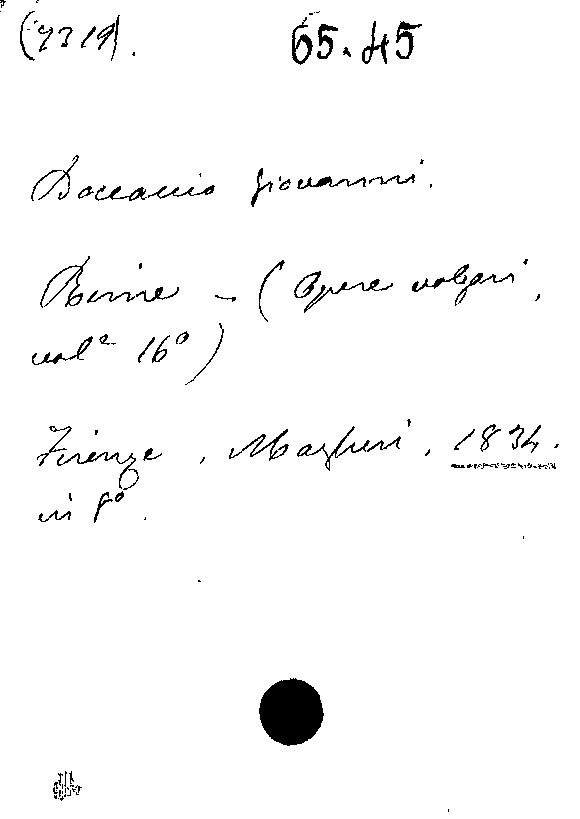 (7319). 65.45
Boccaccio Giovanni.
Rime - (Opere volgari,
vol° 16°)
Firenze, Magheri, 1834.
in 8°.